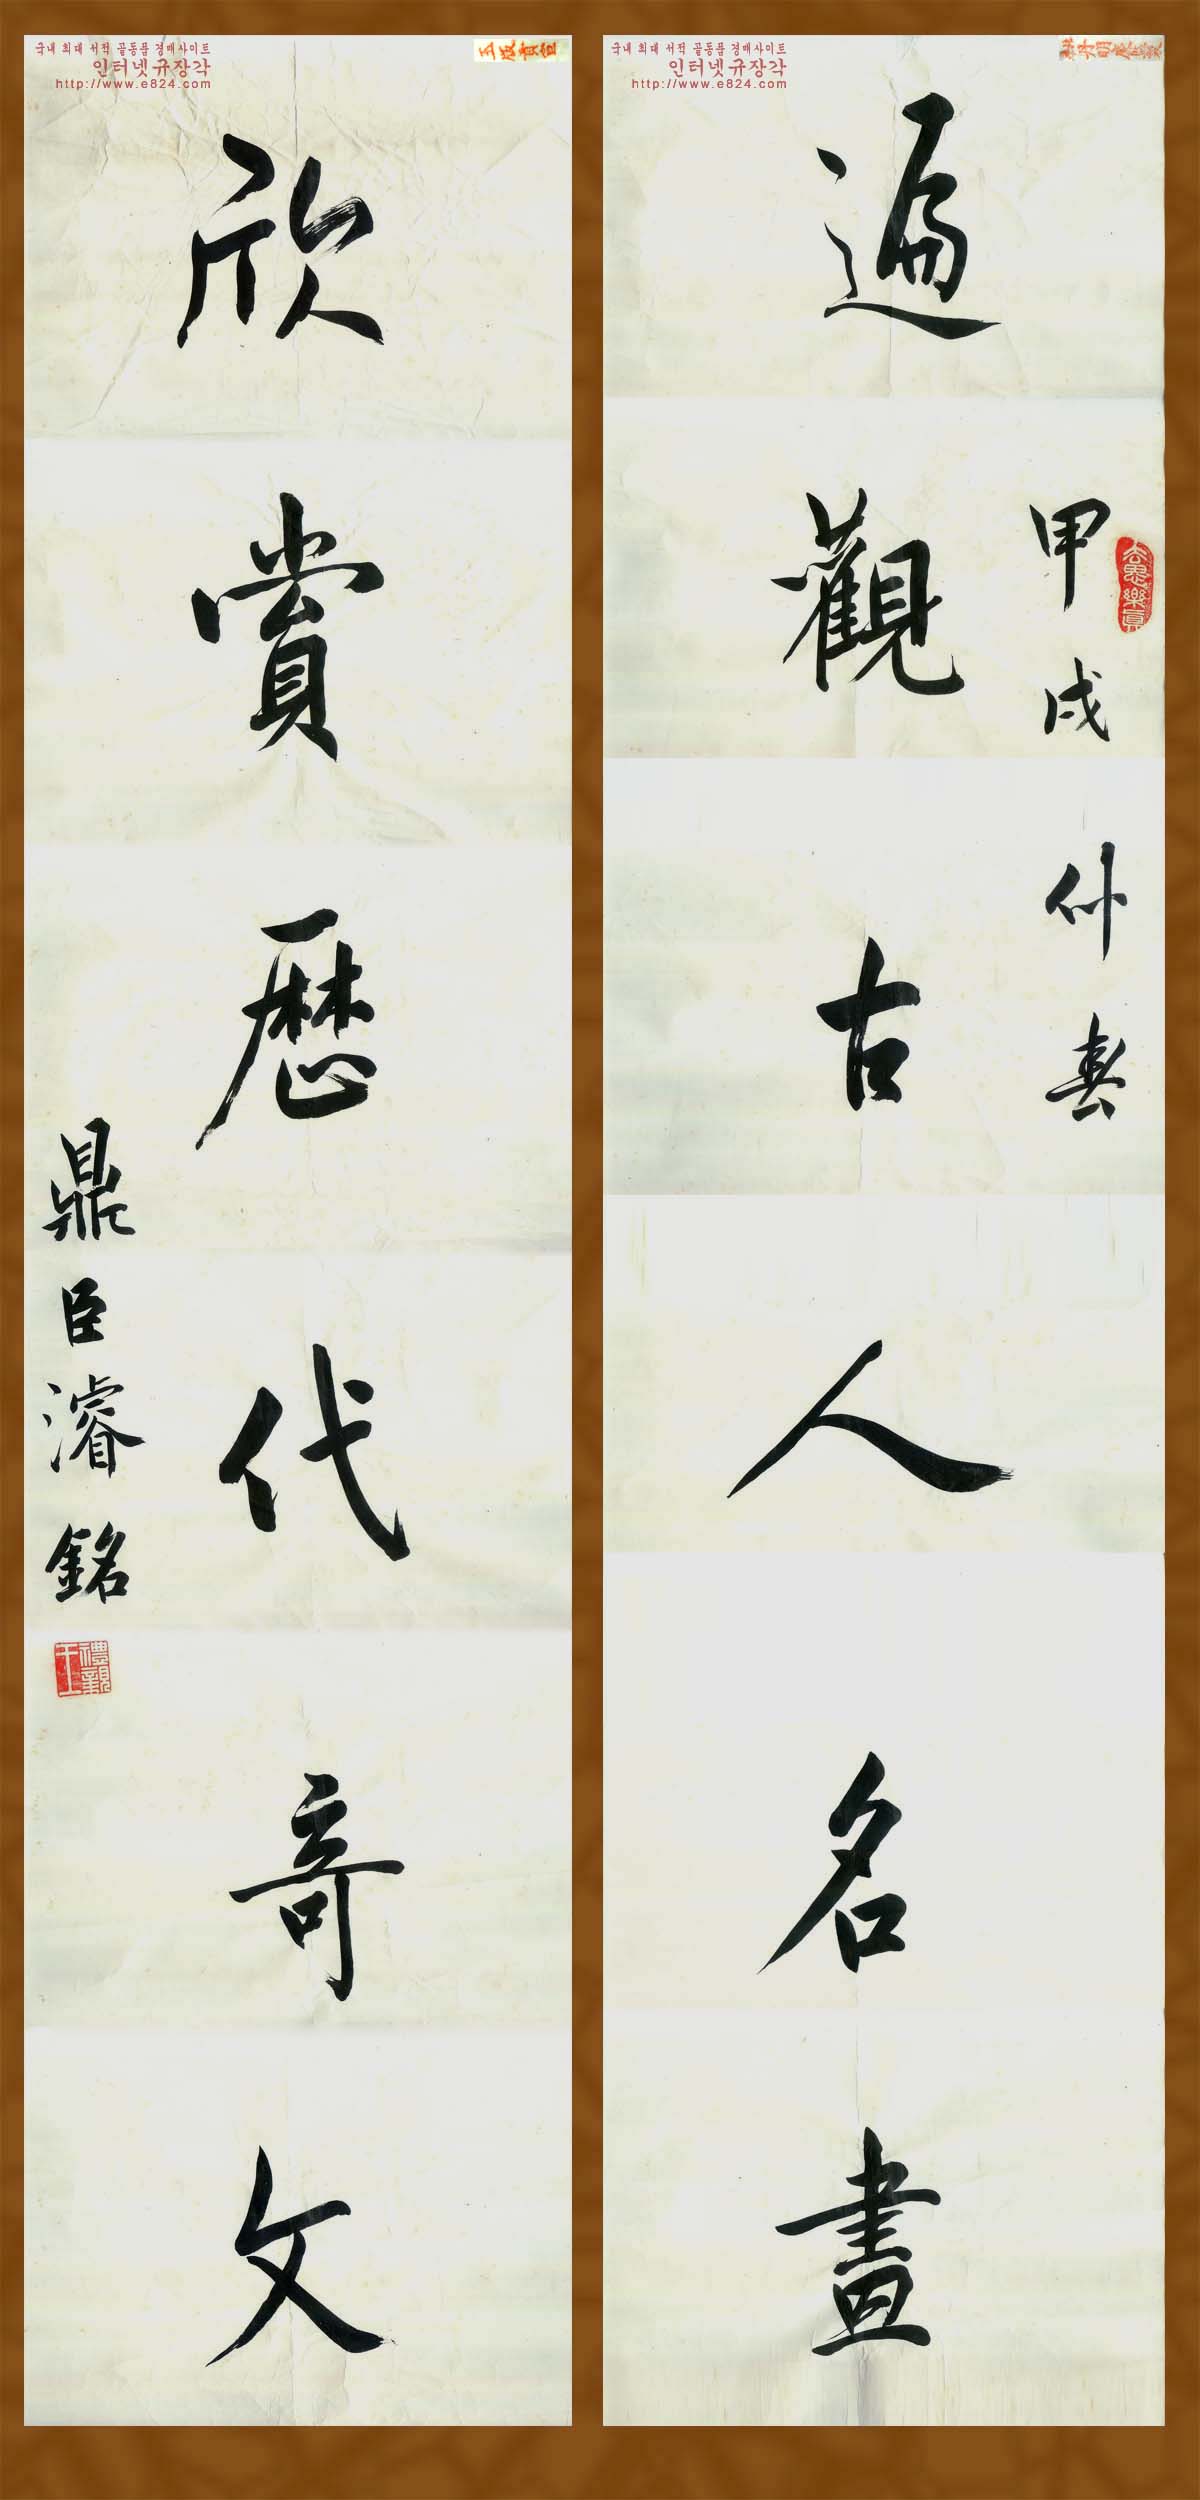 국내 최대 서적 골동품 경매사이트
인터넷규장각
http://www.e824.com
遍觀古人名畫
甲戌仲春
국내 최대 서적 골동품 경매사이트
인터넷규장각
http://www.e824.com
欣賞歷代奇文
鼎臣濬銘
禮親王